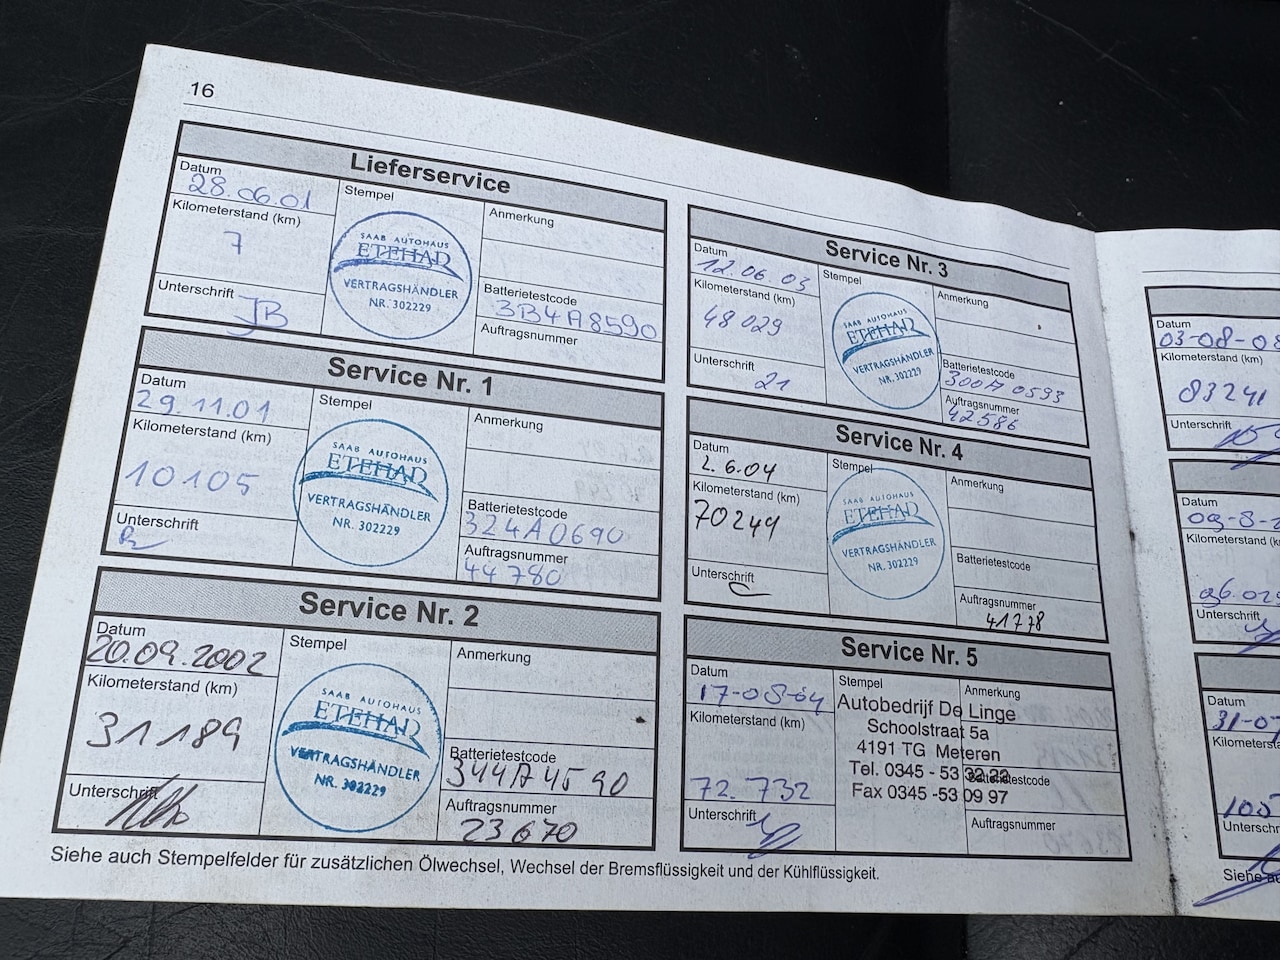 16
Lieferservice
Datum
28.06.01
Kilometerstand (km)
7
Unterschrift
JB
Stempel
SAAB AUTOHAUS
ETEHAD
VERTRAGSHÄNDLER
NR. 302229
Anmerkung
Batterietestcode
3B4A8590
Auftragsnummer
Service Nr. 1
Datum
29.11.01
Kilometerstand (km)
10105
Unterschrift
Stempel
SAAB AUTOHAUS
ETEHAD
VERTRAGSHÄNDLER
NR. 302229
Anmerkung
Batterietestcode
324A0690
Auftragsnummer
44780
Service Nr. 2
Datum
20.09.2002
Kilometerstand (km)
31189
Unterschrift
Stempel
SAAB AUTOHAUS
ETEHAD
VERTRAGSHÄNDLER
NR. 302229
Anmerkung
Batterietestcode
344A4590
Auftragsnummer
23670
Service Nr. 3
Datum
12.06.03
Kilometerstand (km)
48029
Unterschrift
21
Stempel
SAAB AUTOHAUS
ETEHAD
VERTRAGSHÄNDLER
NR. 302229
Anmerkung
Batterietestcode
300A 0593
Auftragsnummer
42586
Service Nr. 4
Datum
2.6.04
Kilometerstand (km)
70249
Unterschrift
Stempel
SAAB AUTOHAUS
ETEHAD
VERTRAGSHÄNDLER
NR. 302229
Anmerkung
Batterietestcode
Auftragsnummer
41778
Service Nr. 5
Datum
17-08-04
Kilometerstand (km)
72.732
Unterschrift
Stempel
Autobedrijf De Linge
Schoolstraat 5a
4191 TG Meteren
Tel. 0345 - 53 32 22
Fax 0345 -53 09 97
Anmerkung
Batterietestcode
Auftragsnummer
Siehe auch Stempelfelder für zusätzlichen Ölwechsel, Wechsel der Bremsflüssigkeit und der Kühlflüssigkeit.
Datum
03-08-0
Kilometerstand (km)
83241
Unterschrift
Datum
09-8-
Kilometerstand (k
96.02
Unterschrift
Datum
31-0
Kilometersta
105
Unterschr
Siehe au